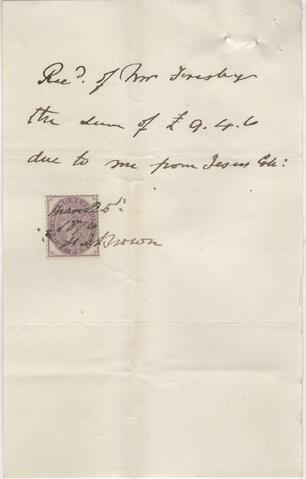 Rec.d of Mr Fowsby
the sum of £ 9.4.6
due to me from Jesus Coll:
March 25th
1876
Brown